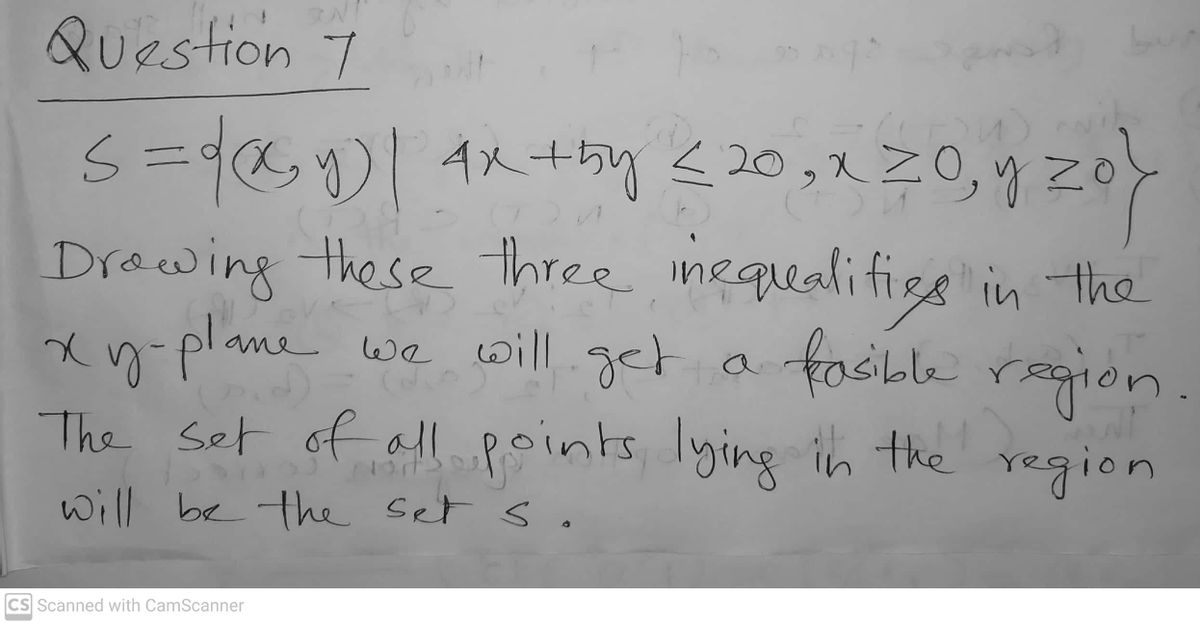 Question 7
S = {(x, y) | 4x + 5y ≤ 20, x ≥ 0, y ≥ 0}
Drawing these three inequalities in the
xy-plane we will get a fasible region.
The set of all points lying in the region
will be the set s.
CS Scanned with CamScanner